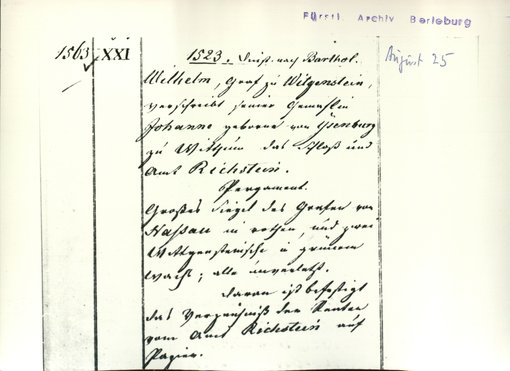 Fürstl. Archiv Berleburg
1563
XXI
1523. Dienst. nach Barthol.
August 25
Wilhelm, Graf zu Witgenstein,
verschreibt seiner Gemahlin
Johanne geborne von Isenburg
zu Witthum das Schloß und
Amt Richstein.
Pergament.
Großes Siegel des Grafen von
Nassau in rothem, und zwei
Wittgensteinische in grünem
Wachs; alle unverletzt.
Daran ist befestigt
das Verzeichniß der Renten
vom Amt Richstein auf
Papier.